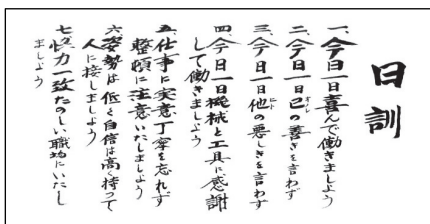 日訓
一、今日一日喜んで働きましよう
二、今日一日己の善きを言わず
オノレ
三、今日一日他の悪しきを言わず
ヒト
四、今日一日機械と工具に感謝
して働きましよう
五、仕事に実意丁寧を忘れず
整頓に注意いたしましよう
六、姿勢は低く自信は高く持つて
人に接しましよう
七、協力一致たのしい職場にいたし
ましよう